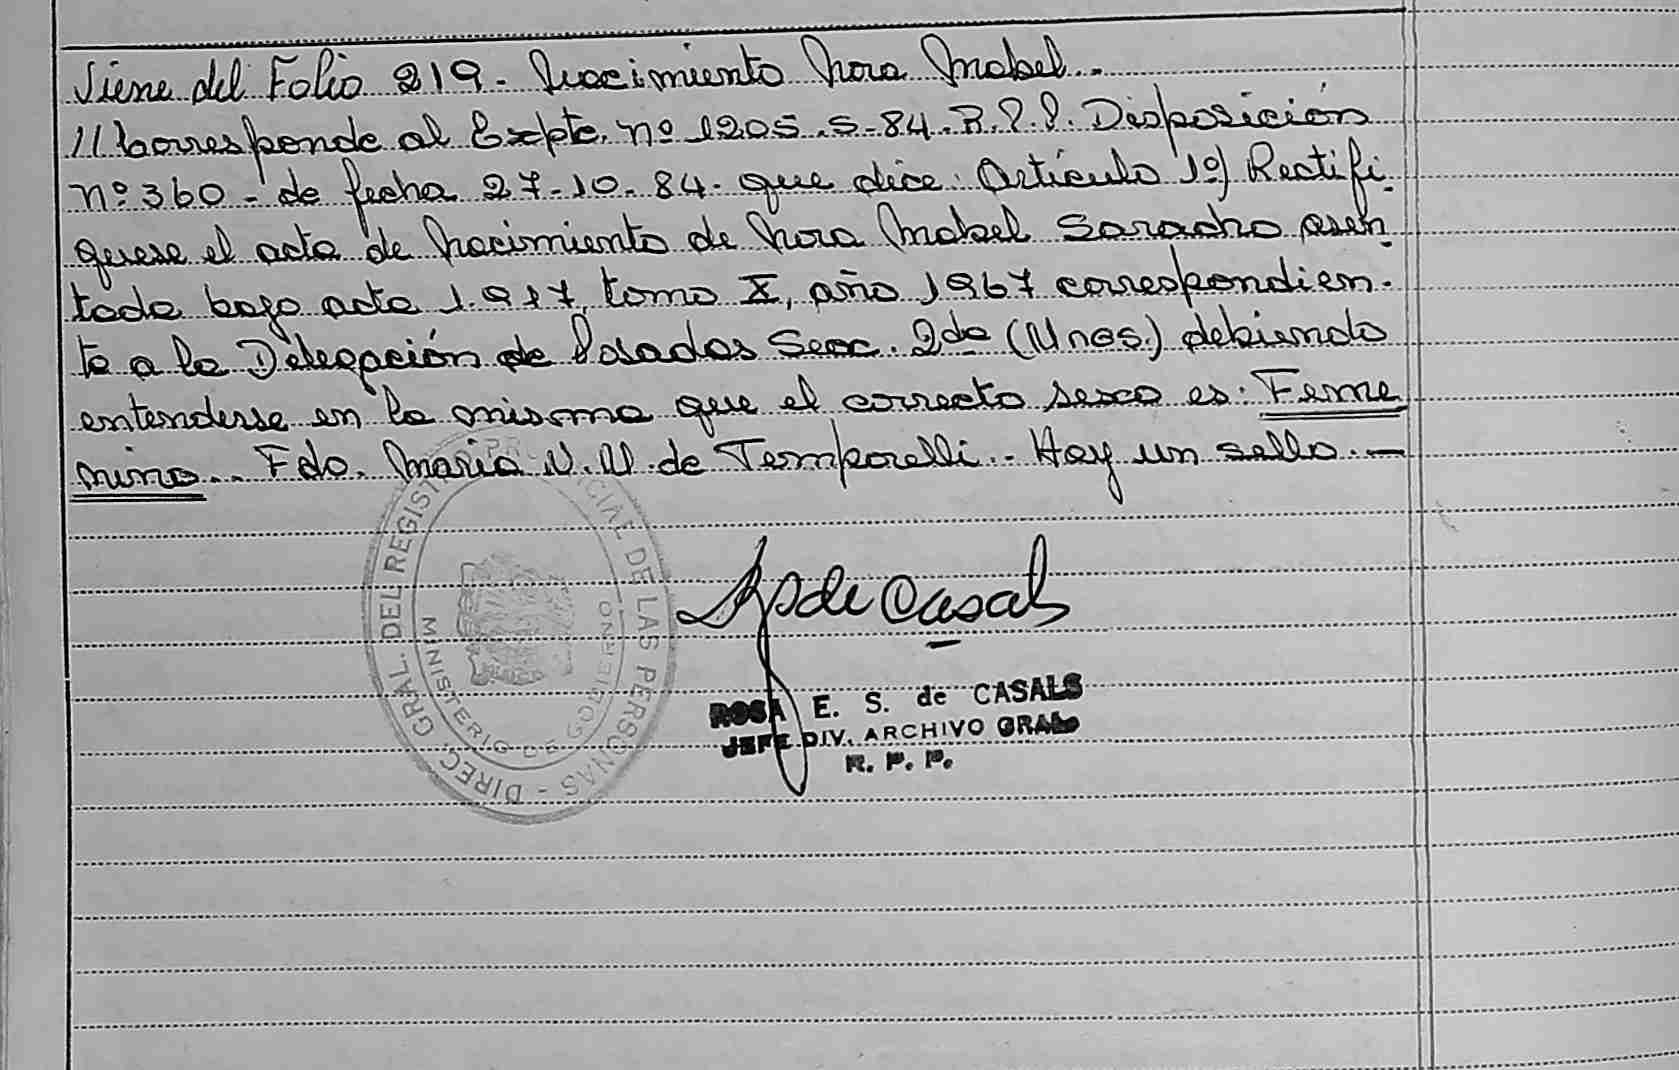 Viene del Folio 219 - Nacimiento Nora Mabel.-
//Corresponde al Expte. nº 1205.S-84.R.P.P. Disposición
nº 360 - de fecha 27-10-84. que dice: Artículo 1º) Rectifi-
quese el acta de Nacimiento de Nora Mabel Saracho asen-
tada bajo acta 1.917, tomo X, año 1967 correspondien-
te a la Delegación de Posadas Secc. 2da (Mnes.) debiendo
entenderse en la misma que el correcto sexo es: Feme
nino.- Fdo. María N.M. de Temporelli.- Hay un sello.-
DIREC. GRAL. DEL REGIST CIAL DE LAS PERSONAS -
MINISTERIO DE GOBIERNO
de Casals
ROSA E. S. de CASALS
JEFE DIV. ARCHIVO GRAL.
R. P. P.